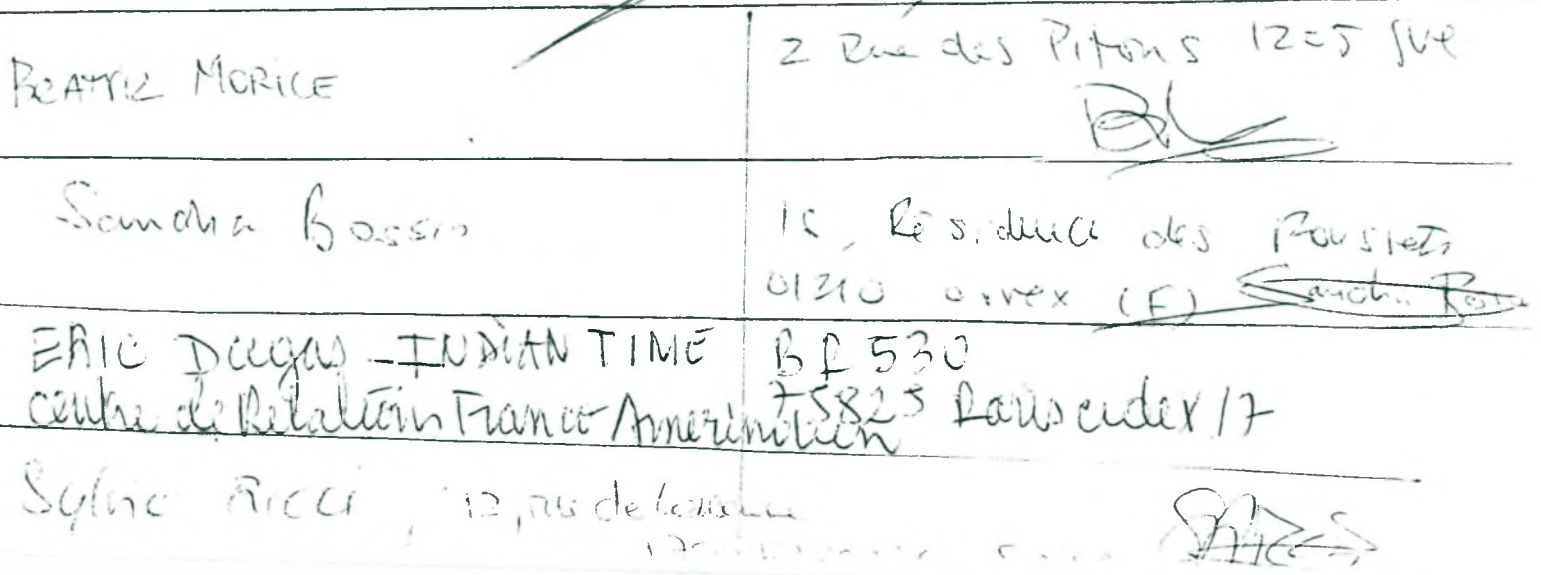 BEATRIZ MORICE
2 Rue des Pitons 1205 GVE
Sandra Bossio
Résidence des
01210 Ornex (F)
ERIC Dugas - INDIAN TIME BP 530
centre de Relation Franco Amérindien 75825 Paris cedex 17
Sylvie Ricci, 12, rue de